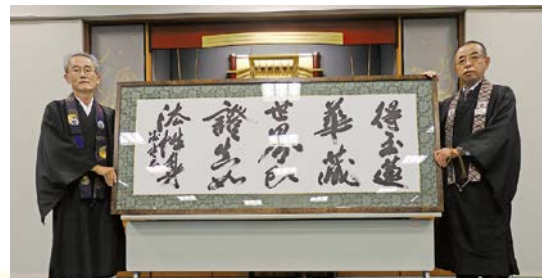 得至蓮
華藏
世界即
證真如
法性身